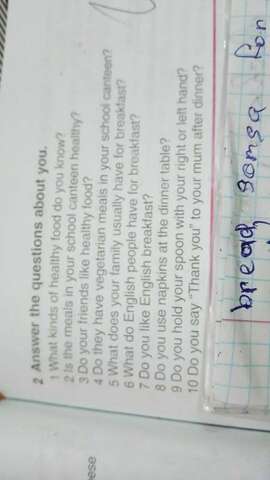 2 Answer the questions about you.
1 What kinds of healthy food do you know?
2 Is the meals in your school canteen healthy?
3 Do your friends like healthy food?
4 Do they have vegetarian meals in your school canteen?
5 What does your family usually have for breakfast?
6 What do English people have for breakfast?
7 Do you like English breakfast?
8 Do you use napkins at the dinner table?
9 Do you hold your spoon with your right or left hand?
10 Do you say "Thank you" to your mum after dinner?
bread, somsa for
eese